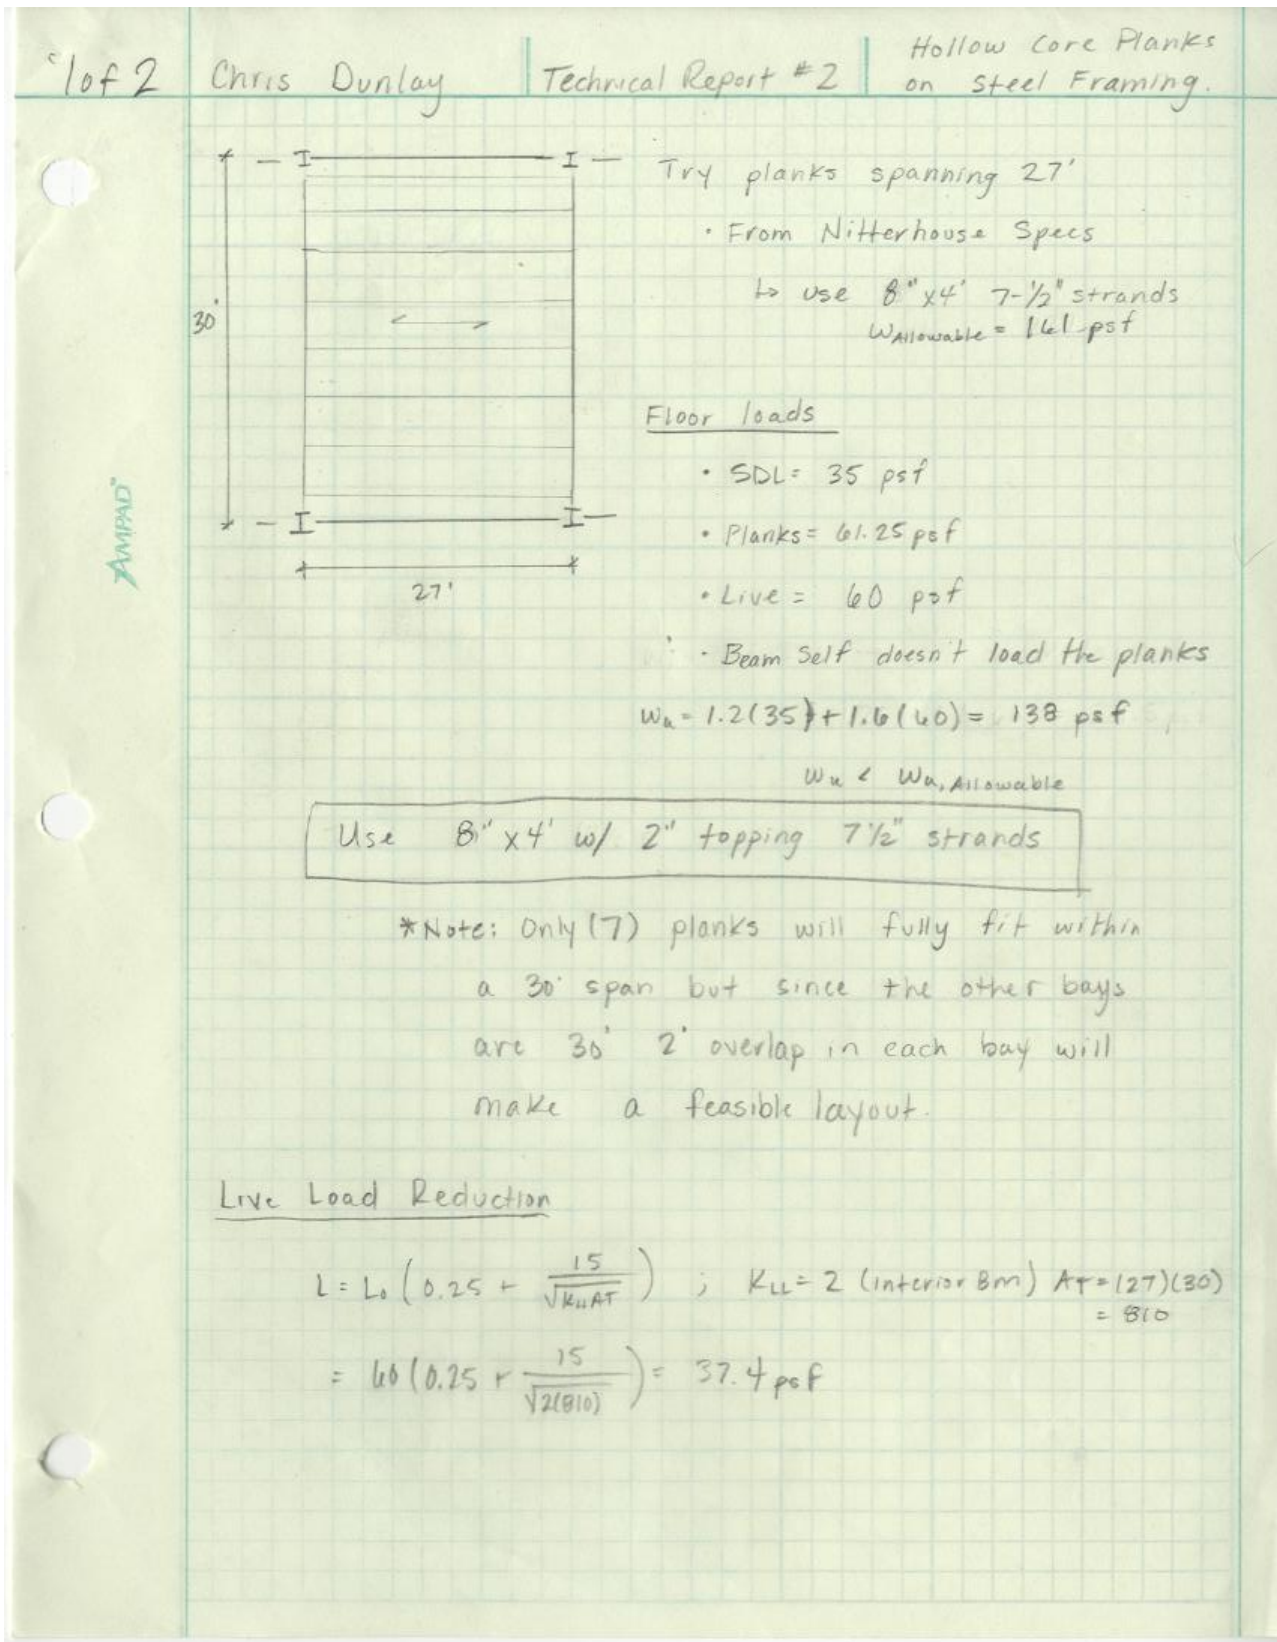 1 of 2
Chris Dunlay
Technical Report #2
Hollow Core Planks
on Steel Framing.
I I
Try planks spanning 27'
• From Nitterhouse Specs
↳ use 8"x4' 7-½" strands
WAllowable = 161 psf
30'
Floor loads
• SDL = 35 psf
I I
• Planks = 61.25 psf
AMPAD
27'
• Live = 60 psf
• Beam Self doesn't load the planks
Wu = 1.2(35) + 1.6(60) = 138 psf
Wu < Wu, Allowable
Use 8" x4' w/ 2" topping 7 ½" strands
*Note: Only (7) planks will fully fit within
a 30' span but since the other bays
are 30' 2' overlap in each bay will
make a feasible layout.
Live Load Reduction
L = Lo (0.25 + 15/√KLLAT) ; KLL = 2 (interior Bm) AT = (27)(30)
= 810
= 60 (0.25 + 15/√2(810)) = 37.4 psf